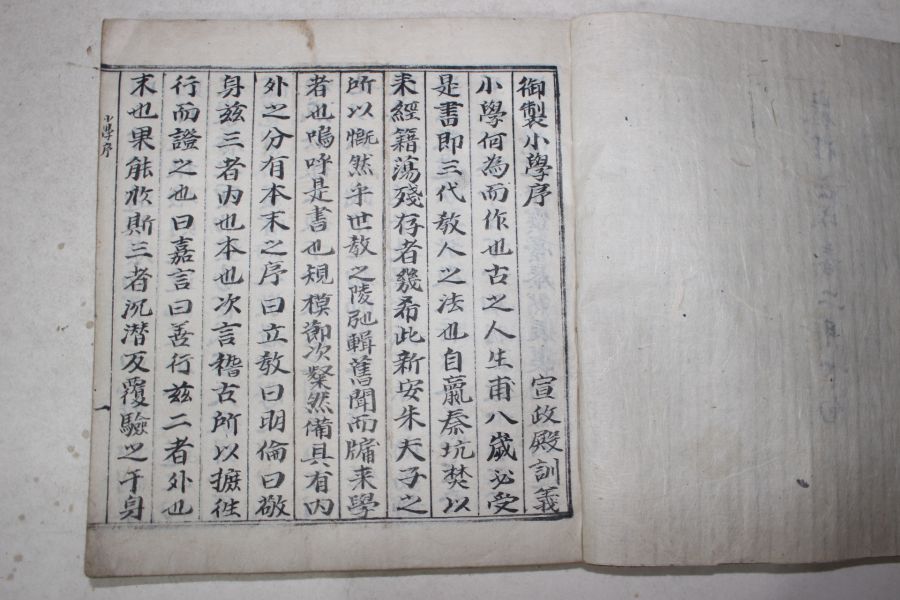 御製小學序 宣政殿訓義
小學何為而作也古之人生甫八歲必受
是書即三代敎人之法也自嬴秦坑焚以
来經籍蕩殘存者幾希此新安朱夫子之
所以慨然乎世敎之陵弛輯舊聞而牖来學
者也嗚呼是書也規模節次粲然備具有內
外之分有本末之序曰立敎曰明倫曰敬
身兹三者內也本也次言稽古所以摭徃
行而證之也曰嘉言曰善行兹二者外也
末也果能於斯三者沉潜反覆驗之于身
小學序
一